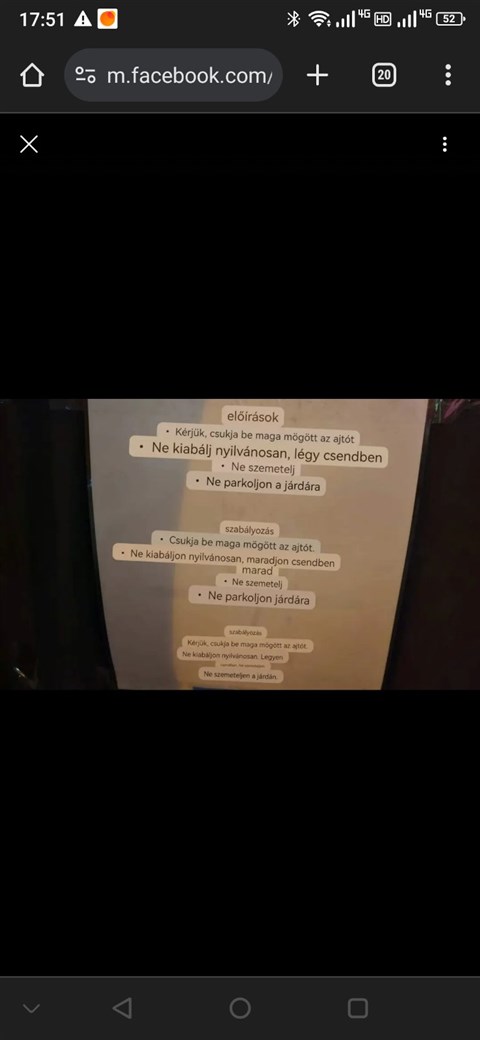 17:51
4G HD 4G 52
m.facebook.com/
20
előírások
• Kérjük, csukja be maga mögött az ajtót
• Ne kiabálj nyilvánosan, légy csendben
• Ne szemetelj
• Ne parkoljon a járdára
szabályozás
• Csukja be maga mögött az ajtót.
• Ne kiabáljon nyilvánosan, maradjon csendben
marad
• Ne szemetelj
• Ne parkoljon járdára
szabályozás
Kérjük, csukja be maga mögött az ajtót.
Ne kiabáljon nyilvánosan. Legyen
Ne szemeteljen a járdán.